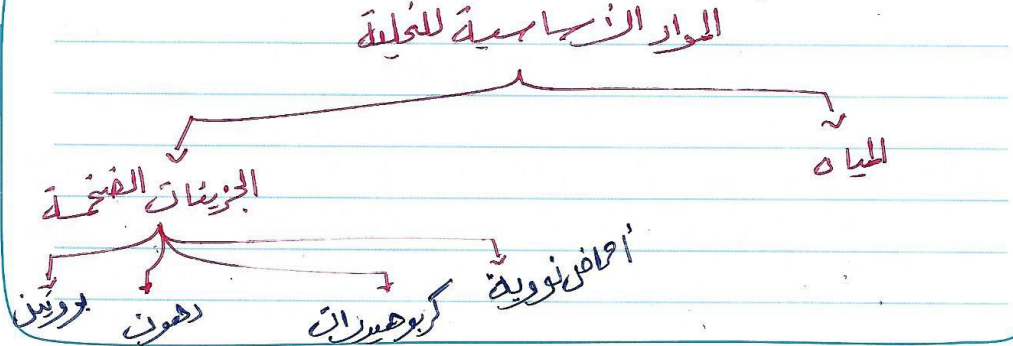 المواد الأساسية للخلية
المياه
الجزيئات الضخمة
أحماض نووية
كربوهيدرات
دهون
بروتين